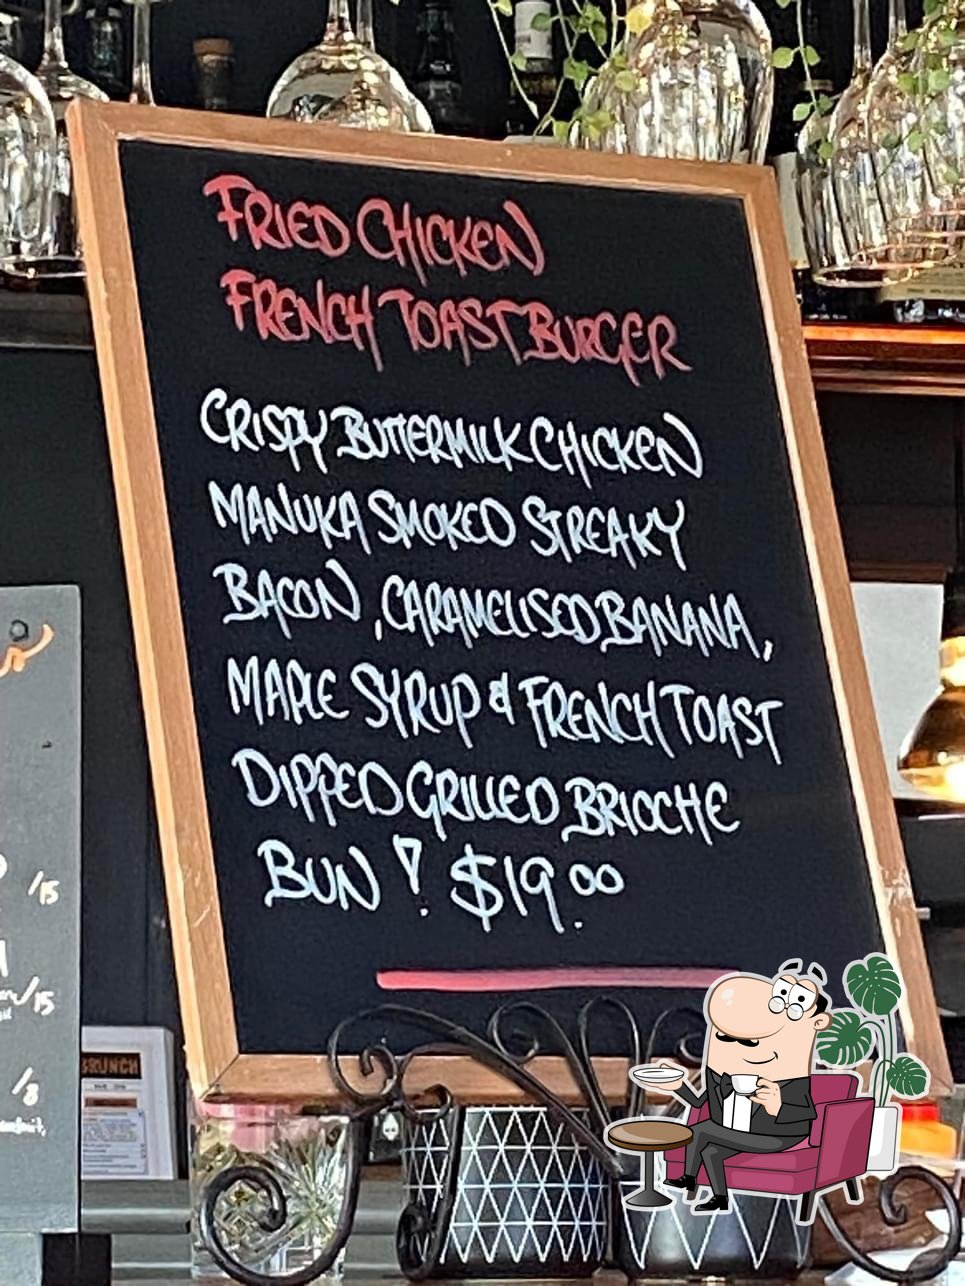 FRIED CHICKEN
FRENCH TOAST BURGER
CRISPY BUTTERMILK CHICKEN
MANUKA SMOKED STREAKY
BACON, CARAMELISED BANANA,
MAPLE SYRUP & FRENCH TOAST
DIPPED GRILLED BRIOCHE
BUN! $19.00
/15
/15
/8
BRUNCH